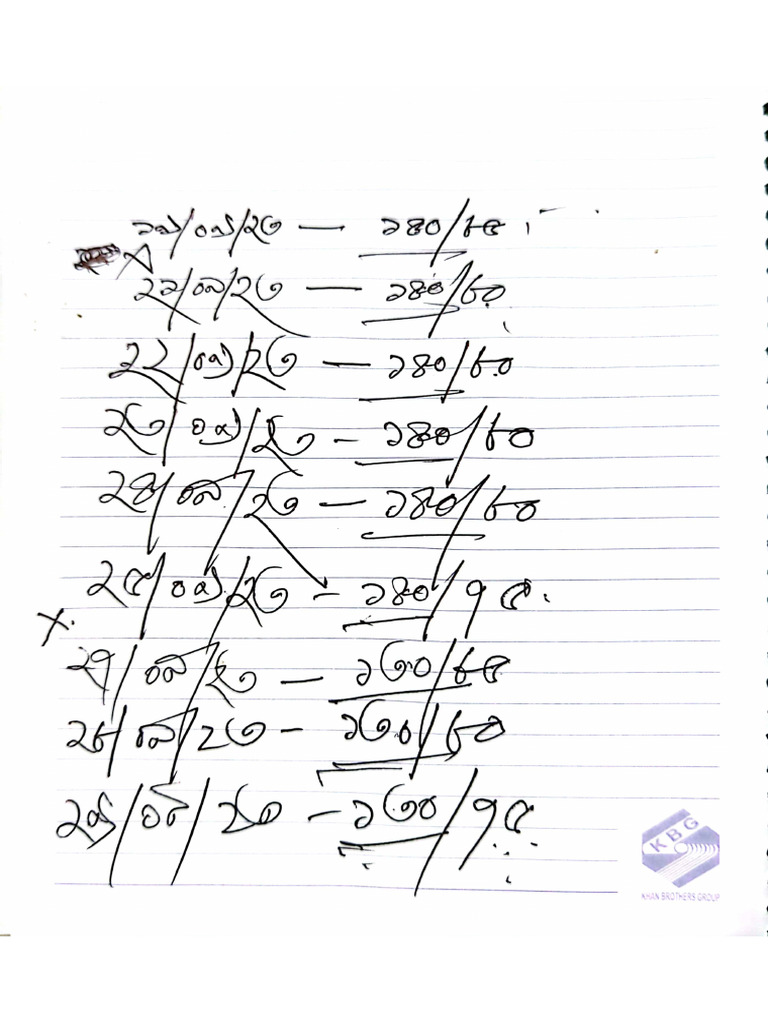 ১৯/০৯/২৩ — ১৪০/৮৫
২১/০৯/২৩ — ১৪০/৮০
২২/০৯/২৩ — ১৪০/৮০
২৩/০৯/২৩ - ১৪০/৮০
২৪/০৯/২৩ — ১৪০/৮০
২৫/০৯/২৩ - ১৪০/৭৫
২৭/০৯/২৩ — ১৩০/৮৫
২৮/০৯/২৩ - ১৩০/৮০
২৯/০৯/২৩ — ১৩০/৭৫
KBG
KHAN BROTHERS GROUP